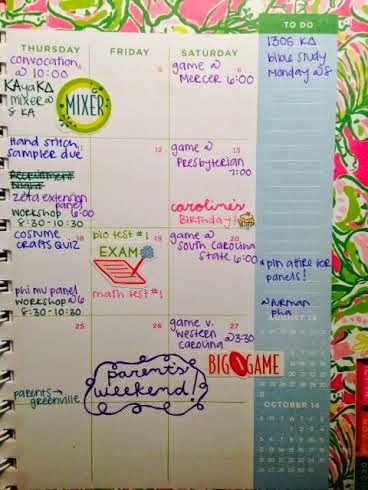 TO DO
THURSDAY
FRIDAY
SATURDAY
convocation
@ 10:00
KAyaKΔ
mixer @
8 KA
4
MIXER
5
6
game @
MERCER 6:00
1305 KΔ
bible study
Monday @8
11
Hand Stitch
sampler due
Recruitment
Night
zeta extension
panel
workshop 6:00
8:30-10:30
12
13
game @
Presbyterian
7:00
caroline's
Birthday!
18
costume
crafts QUIZ
phi mu panel
workshop @6
8:30-10:30
19
bio test #1
EXAM
math test #1
20
game @
south carolina
state 6:00
* pin attire for
panels!
@ Furman
pha
25
parents →
greenville
26
27
game v.
western
carolina @3:30
BIG GAME
parents
weekend!
AUGUST 14
OCTOBER 14